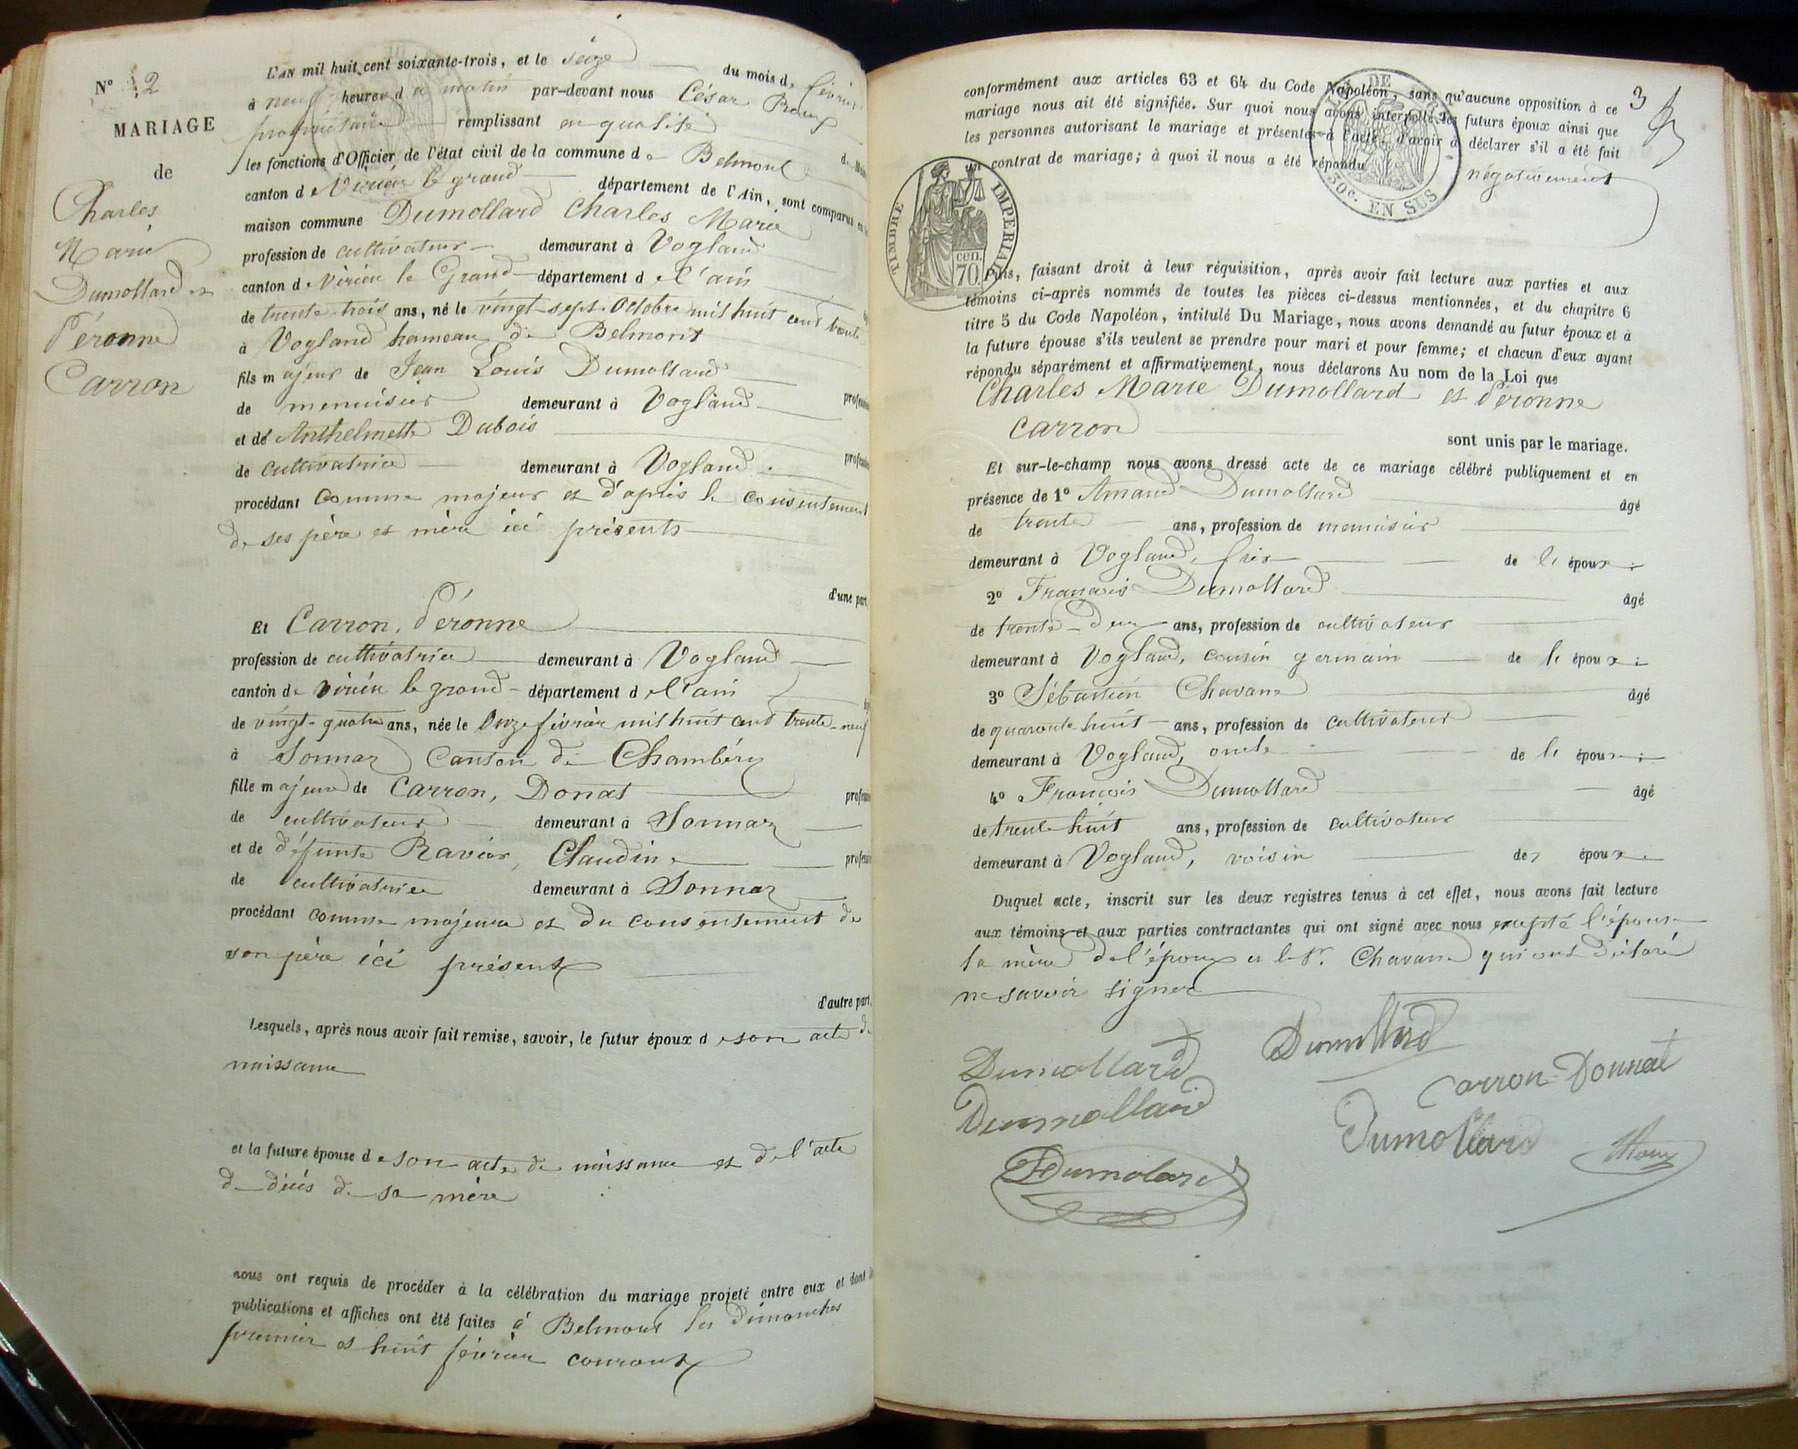 N° 2
MARIAGE
de
Charles
Marie
Dumollard et
Péronne
Carron
L'AN mil huit cent soixante-trois, et le seize du mois de février
à neuf heures du matin par-devant nous César Roux
propriétaire remplissant en qualité de Maire
les fonctions d'Officier de l'état civil de la commune de Belmont
canton de Virieu le grand département de l'Ain, sont comparus en la
maison commune Dumollard Charles Marie
profession de cultivateur demeurant à Vogland
canton de Virieu le Grand département de l'ain
de trente trois ans, né le vingt-sept Octobre mil huit cent trente
à Vogland hameau de Belmont
fils majeur de Jean Louis Dumollard profession
de menuisier demeurant à Vogland
et de Anthelmette Dubois profession
de cultivatrice demeurant à Vogland
procédant comme majeur et d'après le consentement
de ses père et mère ici présents
d'une part,
Et Carron, Péronne
profession de cultivatrice demeurant à Vogland
canton de Virieu le grand département de l'ain
de vingt-quatre ans, née le Onze février mil huit cent trente-neuf
à Sonnaz Canton de Chambéry
fille majeure de Carron, Donat profession
de cultivateur demeurant à Sonnaz
et de défunte Ravier, Claudine profession
de cultivatrice demeurant à Sonnaz
procédant comme majeure et du consentement de
son père ici présent
d'autre part.
Lesquels, après nous avoir fait remise, savoir, le futur époux de son acte de
naissance
et la future épouse de son acte de naissance et de l'acte
de décès de sa mère
nous ont requis de procéder à la célébration du mariage projeté entre eux et dont les
publications et affiches ont été faites à Belmont les dimanches
premier et huit février courant
3
conformément aux articles 63 et 64 du Code Napoléon, sans qu'aucune opposition à ce
mariage nous ait été signifiée. Sur quoi nous avons interpellé les futurs époux ainsi que
les personnes autorisant le mariage et présentes à l'acte, d'avoir à déclarer s'il a été fait
contrat de mariage; à quoi il nous a été répondu négativement
50c. EN SUS
TIMBRE IMPERIAL
cen. 70
Puis, faisant droit à leur réquisition, après avoir fait lecture aux parties et aux
témoins ci-après nommés de toutes les pièces ci-dessus mentionnées, et du chapitre 6
titre 5 du Code Napoléon, intitulé Du Mariage, nous avons demandé au futur époux et à
la future épouse s'ils veulent se prendre pour mari et pour femme; et chacun d'eux ayant
répondu séparément et affirmativement, nous déclarons Au nom de la Loi que
Charles Marie Dumollard et Péronne
Carron
sont unis par le mariage.
Et sur-le-champ nous avons dressé acte de ce mariage célébré publiquement et en
présence de 1° Amand Dumollard âgé
de trente ans, profession de menuisier
demeurant à Vogland, frère de l' époux
2° François Dumollard âgé
de trente-deux ans, profession de cultivateur
demeurant à Vogland, cousin germain de l' époux
3° Sébastien Chavane âgé
de quarante huit ans, profession de cultivateur
demeurant à Vogland, oncle de l' époux
4° François Dumollard âgé
de trente huit ans, profession de cultivateur
demeurant à Vogland, voisin des époux
Duquel acte, inscrit sur les deux registres tenus à cet effet, nous avons fait lecture
aux témoins et aux parties contractantes qui ont signé avec nous excepté l'épouse
la mère de l'époux et le Sr. Chavane qui ont déclaré
ne savoir signer
Dumollard Dumollard
Carron Donnat
Dumollard
Dumollard
Dumolard Roux